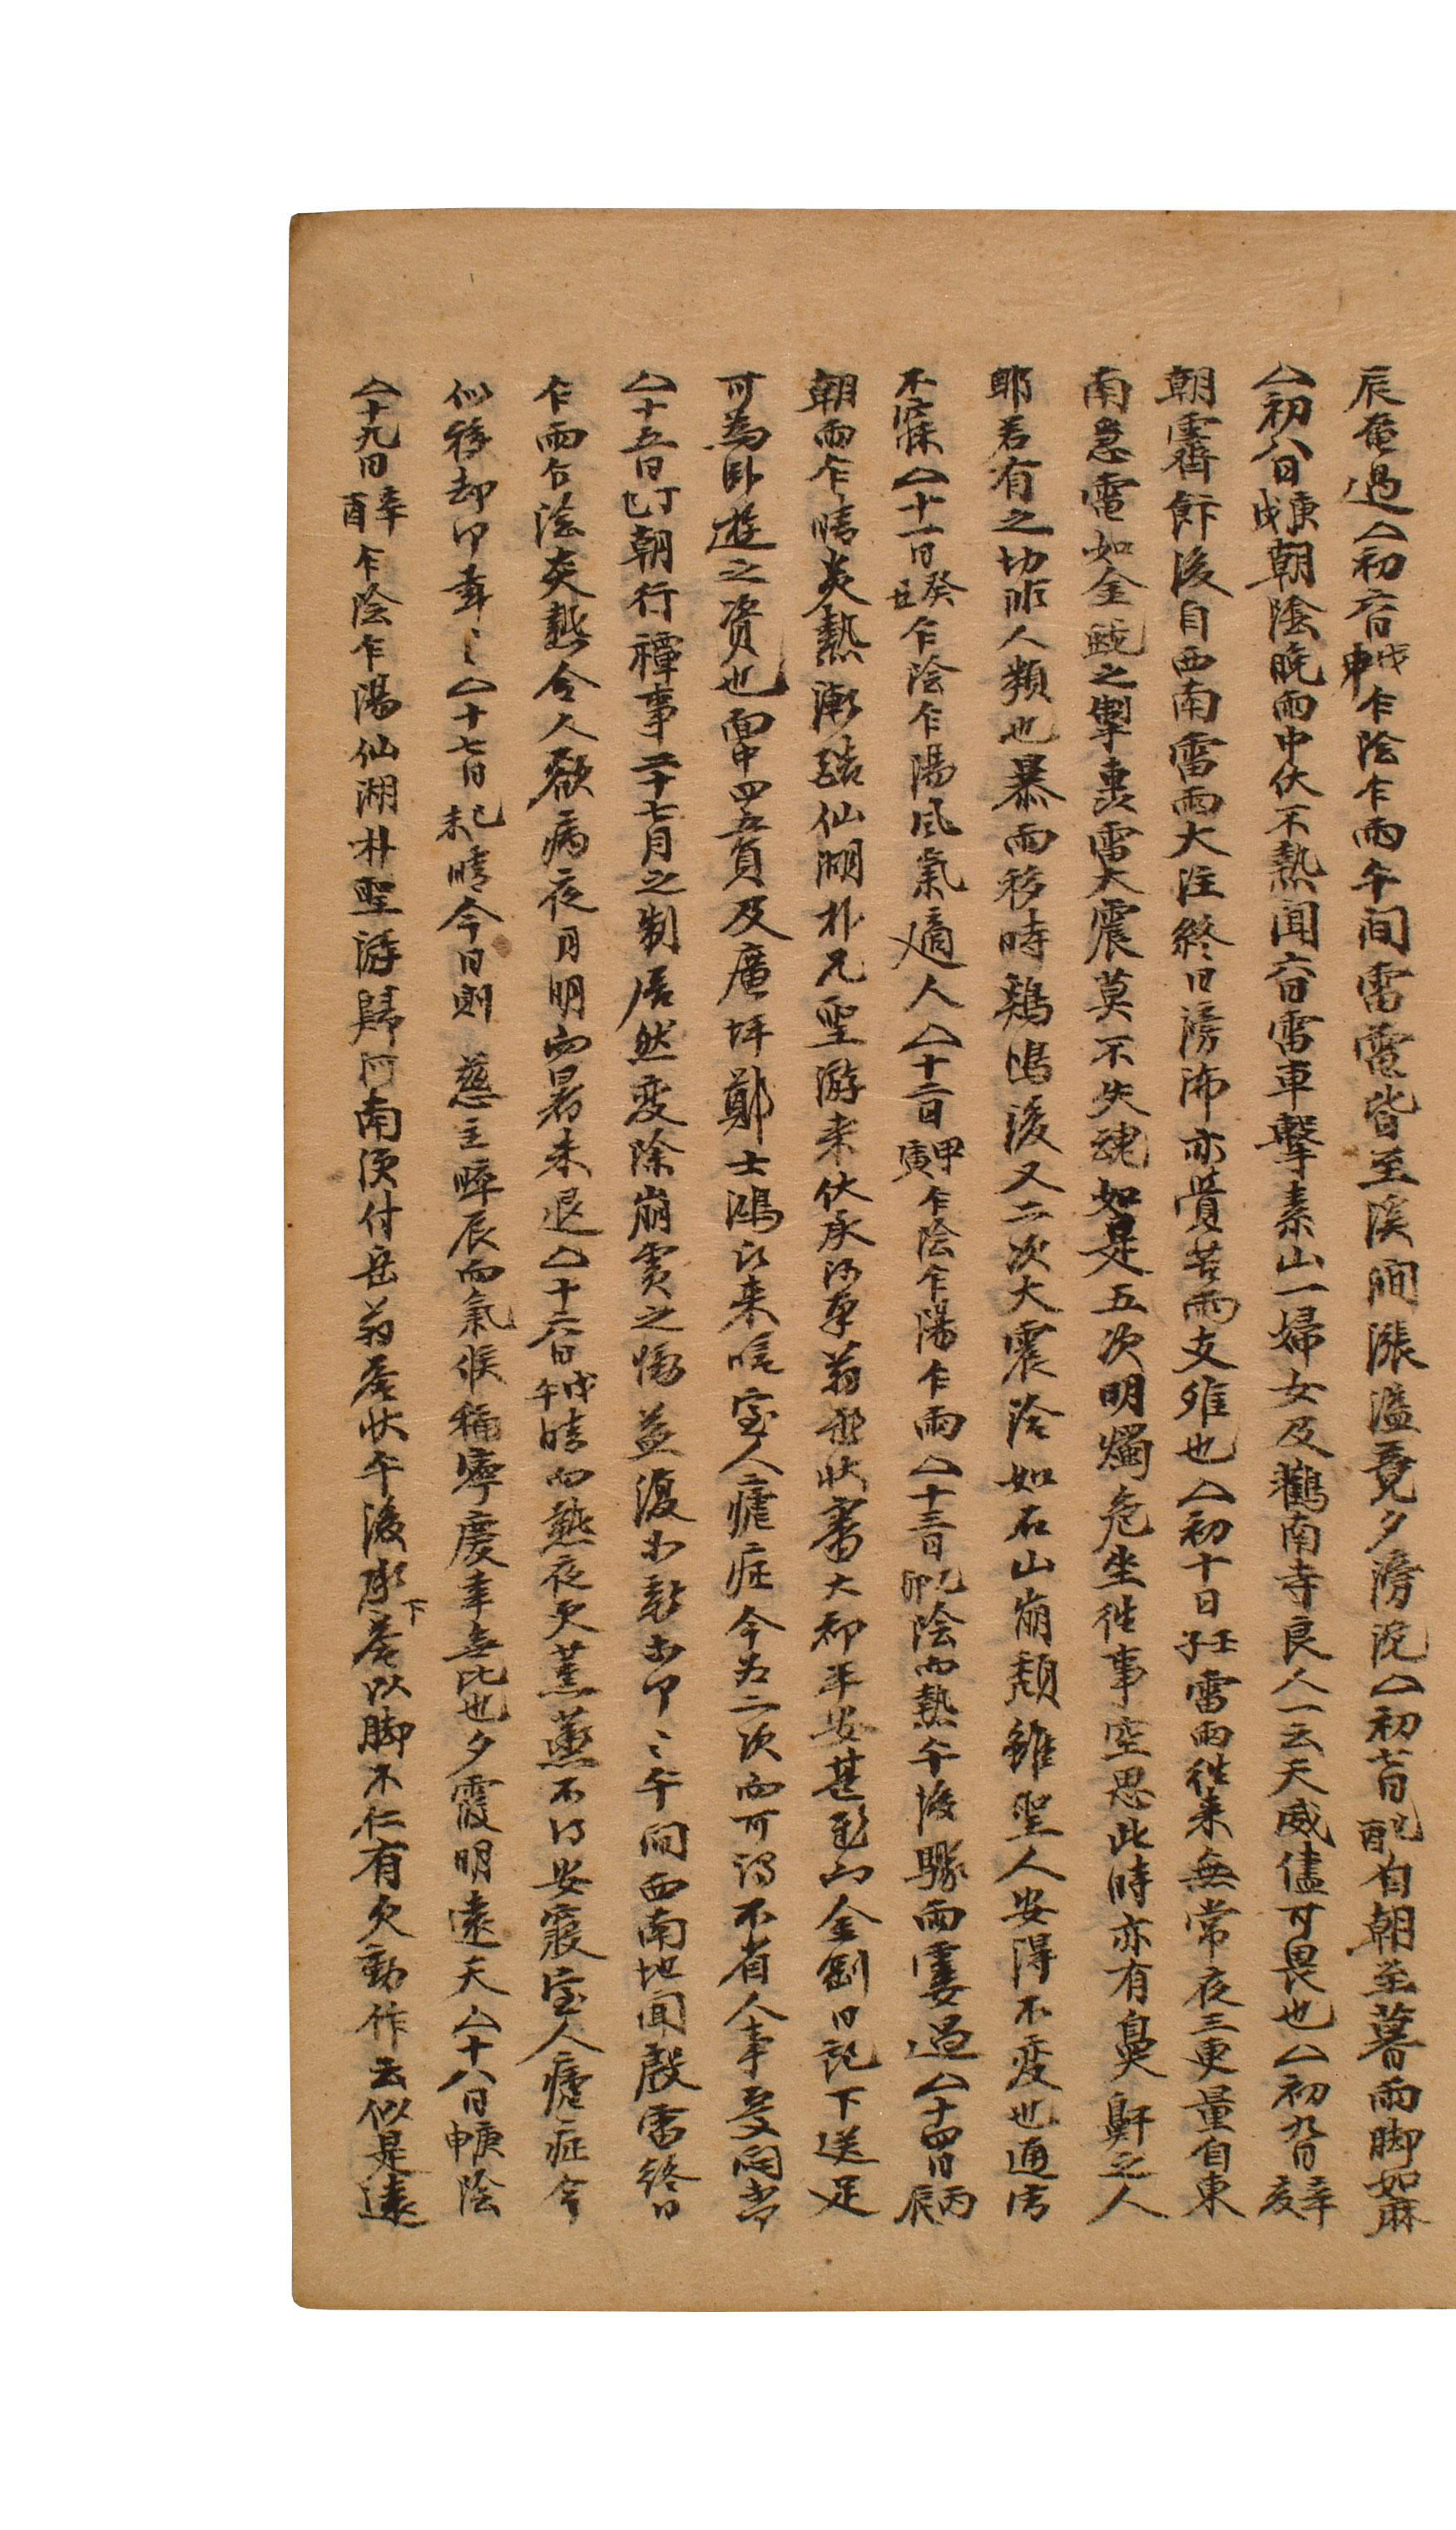 辰奄過△初六日戊申乍陰乍雨午間雷電皆至溪澗漲溢竟夕滂沱△初七日己酉自朝至暮雨脚如麻
△初八日庚戌朝陰晚雨中伏不熱聞六日雷車擊素山一婦女及鶴南寺良人一云天威儘可畏也△初九日辛亥
朝霽餘後自西南雷雨大注終日滂沛亦覺苦雨支離也△初十日壬子雷雨往來無常夜三更量自東
南急電如金蛇之掣裹雷大震莫不失魂如是五次明燭危坐往事空思此時亦有鼻鼾之人
耶若有之切非人類也暴雨移時鷄鳴後又二次大震冷如石山崩頹雖聖人安得不變也通宵
不寐△十一日癸丑乍陰乍陽風氣適人△十二日甲寅乍陰乍陽乍雨△十三日乙卯陰而熱午後驟雨霎過△十四日丙辰
朝雨乍晴炎熱漸酷仙湖朴兄聖游來伏承 翁 狀審大都平安甚 金剛日記下送足
可爲臥遊之資也面中四五員及廣坪鄭士鴻 來 室人瘧症今爲二次而可謂不省人事
△十五日丁巳朝行禫事二十七月之制居然變除崩霣之慟益復 午間西南地聞殷雷終日
乍雨乍陰炎熱令人欲病夜月明而暑未退△十六日戊午晴而熱夜又蒸蒸不得安寢室人瘧症今
似移却 幸幸△十七日己未晴今日則 慈主晬辰而氣候稱寧慶幸無比也夕霞明遠天△十八日庚申陰
△十九日辛酉乍陰乍陽仙湖朴聖游歸河南便付岳翁 狀午後承 下 以脚不仁有欠動作云似是遠